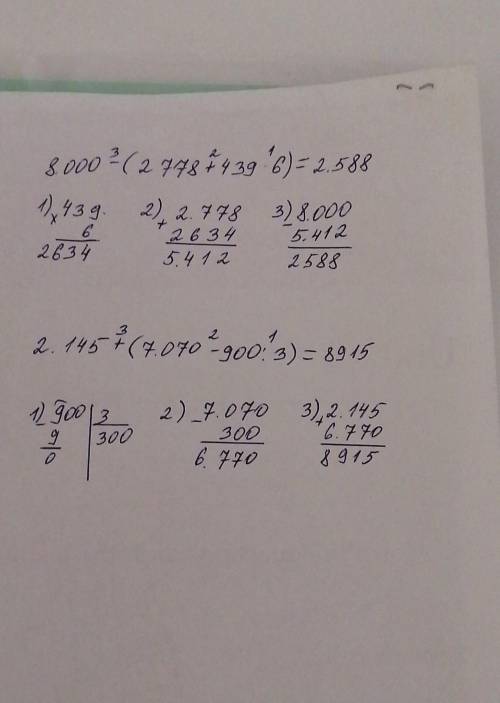 8.000 3 - ( 2 778 2 + 439 1 · 6) = 2.588
1) x 439. 2) + 2.778 3) - 8.000
6 2634 5.412
2634 5.412 2588
2.145 3 + ( 7.070 2 - 900 1 : 3) = 8915
1) - 900 | 3 2) - 7.070 3) + 2.145
9 300 300 6.770
0 6.770 8915